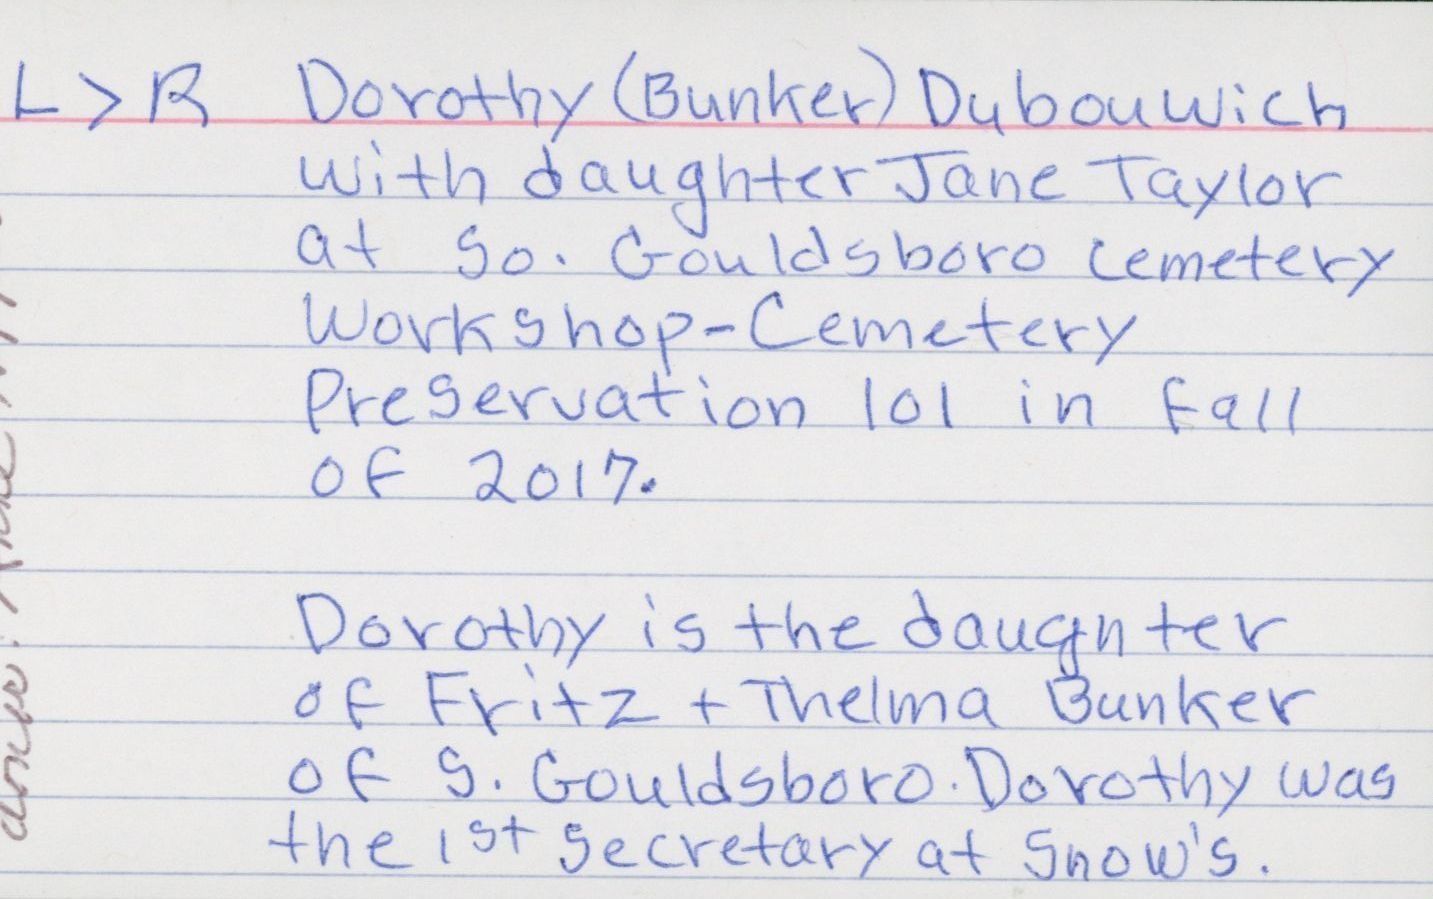 L > R Dorothy (Bunker) Dubouwich
with daughter Jane Taylor
at So. Gouldsboro Cemetery
Workshop-Cemetery
Preservation 101 in Fall
of 2017.
Dorothy is the daughter
of Fritz + Thelma Bunker
of S. Gouldsboro. Dorothy was
the 1st secretary at Snow's.